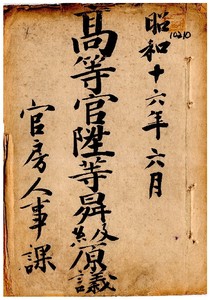 昭和十六年六月
10210
高等官陞等昇級原議
官房人事課